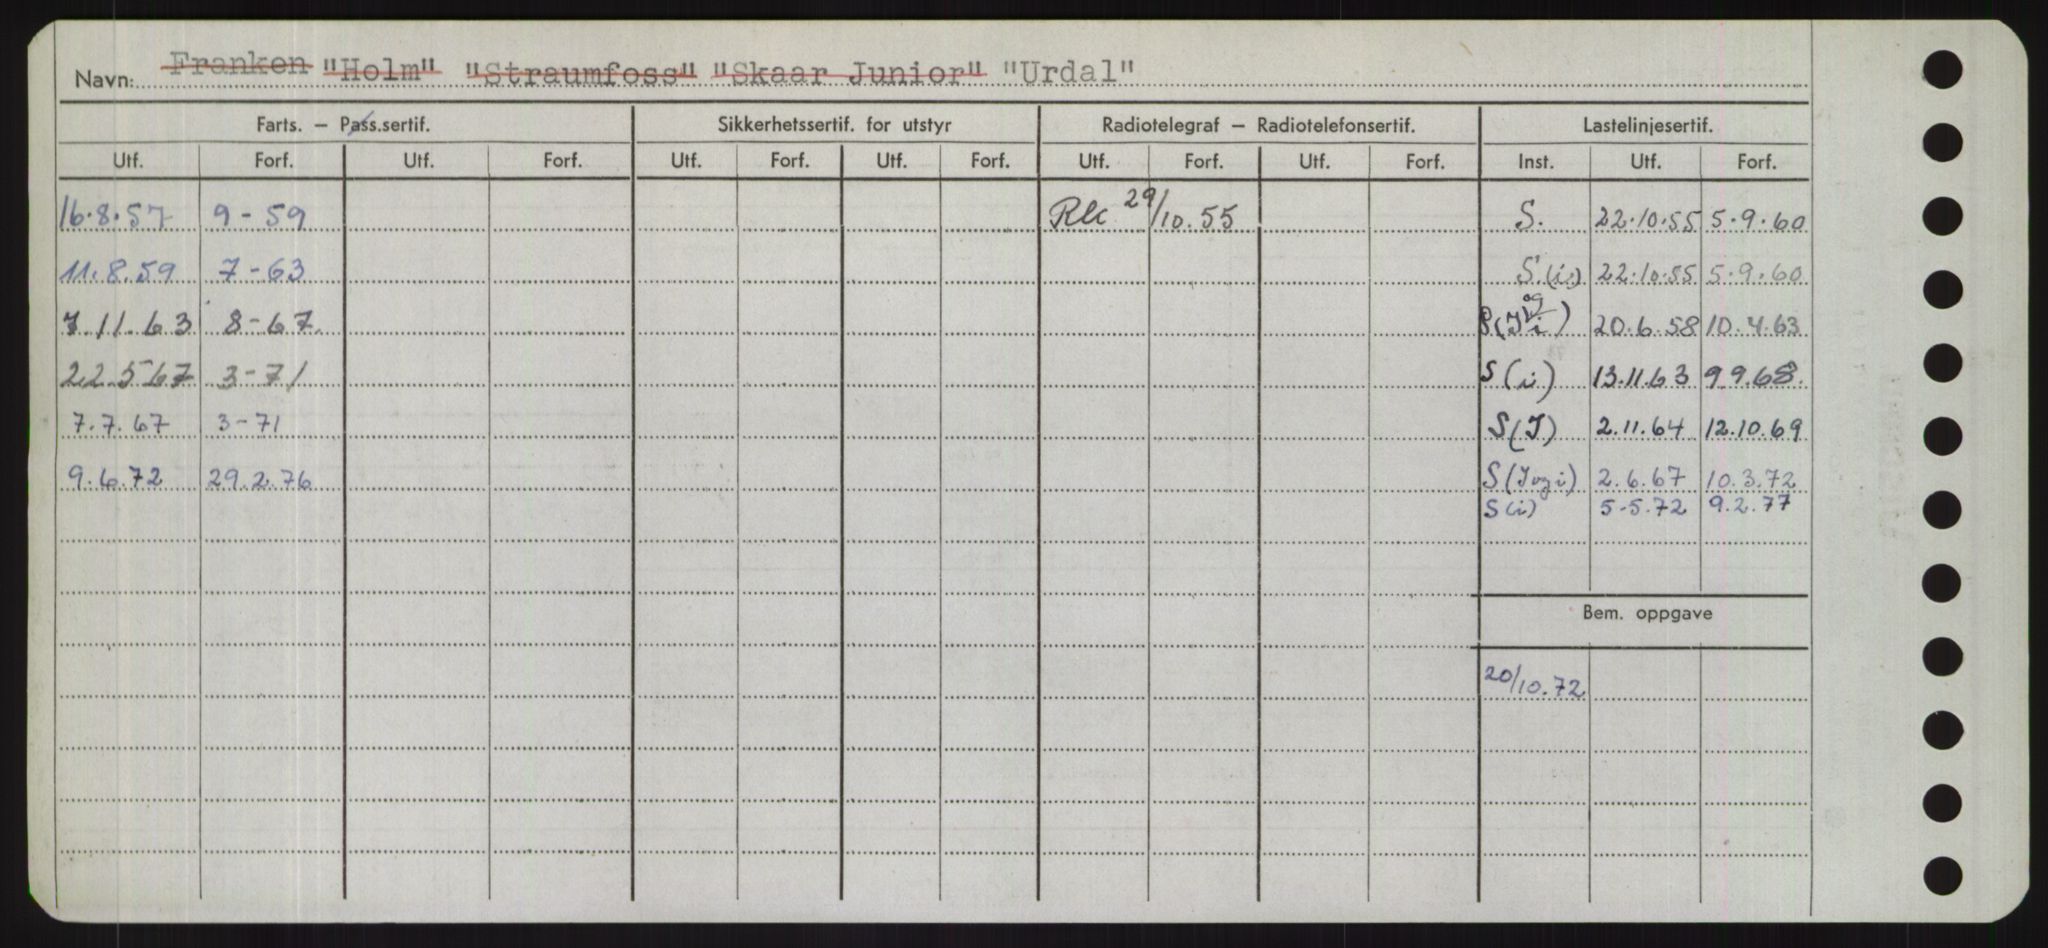 Navn: Franken "Holm" "Straumfoss" "Skaar Junior" "Urdal"
Farts. – Pass.sertif. Sikkerhetssertif. for utstyr Radiotelegraf – Radiotelefonsertif. Lastelinjesertif.
Utf. Forf. Utf. Forf. Utf. Forf. Utf. Forf. Utf. Forf. Utf. Forf. Inst. Utf. Forf.
16.8.57 9-59 29/10.55 S. 22.10.55 5.9.60
11.8.59 7-63 S(i) 22.10.55 5.9.60
7.11.63 8-67. S(J og i) 20.6.58 10.4.63
22.5 67 3-71 S(i) 13.11.63 9 9.68.
7.7.67 3-71 S(J) 2.11.64 12.10.69
9.6.72 29.2.76 S(J og i) 2.6.67 10.3.72
S(i) 5-5.72 9.2.77
Bem. oppgave
20/10.72